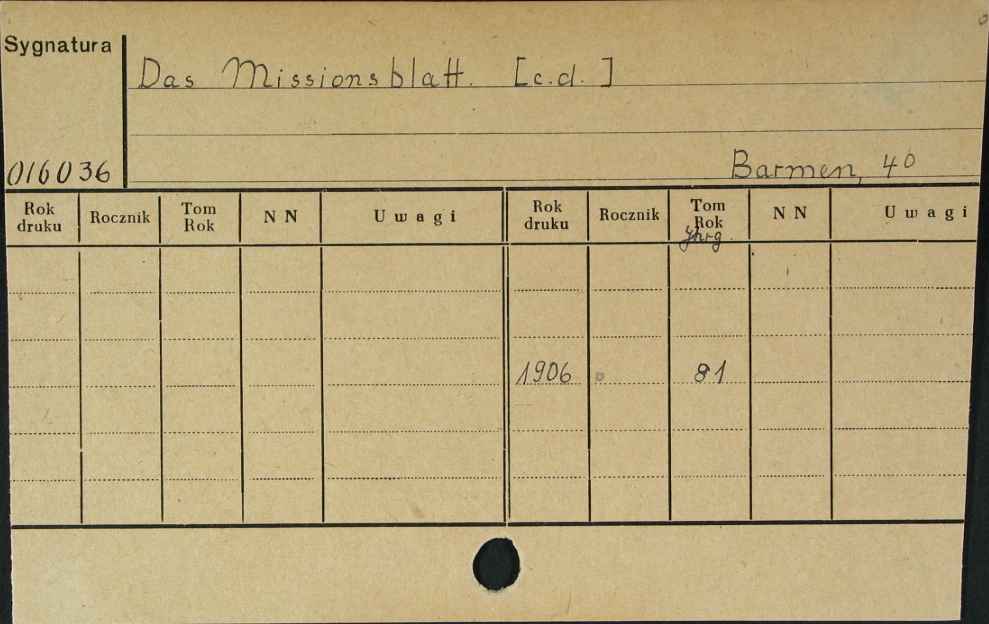 Sygnatura
Das Missionsblatt. [c.d.]
016036
Barmen, 4⁰
Rok druku Rocznik Tom Rok NN Uwagi Rok druku Rocznik Tom Rok NN Uwagi
Jhrg.
1906 81